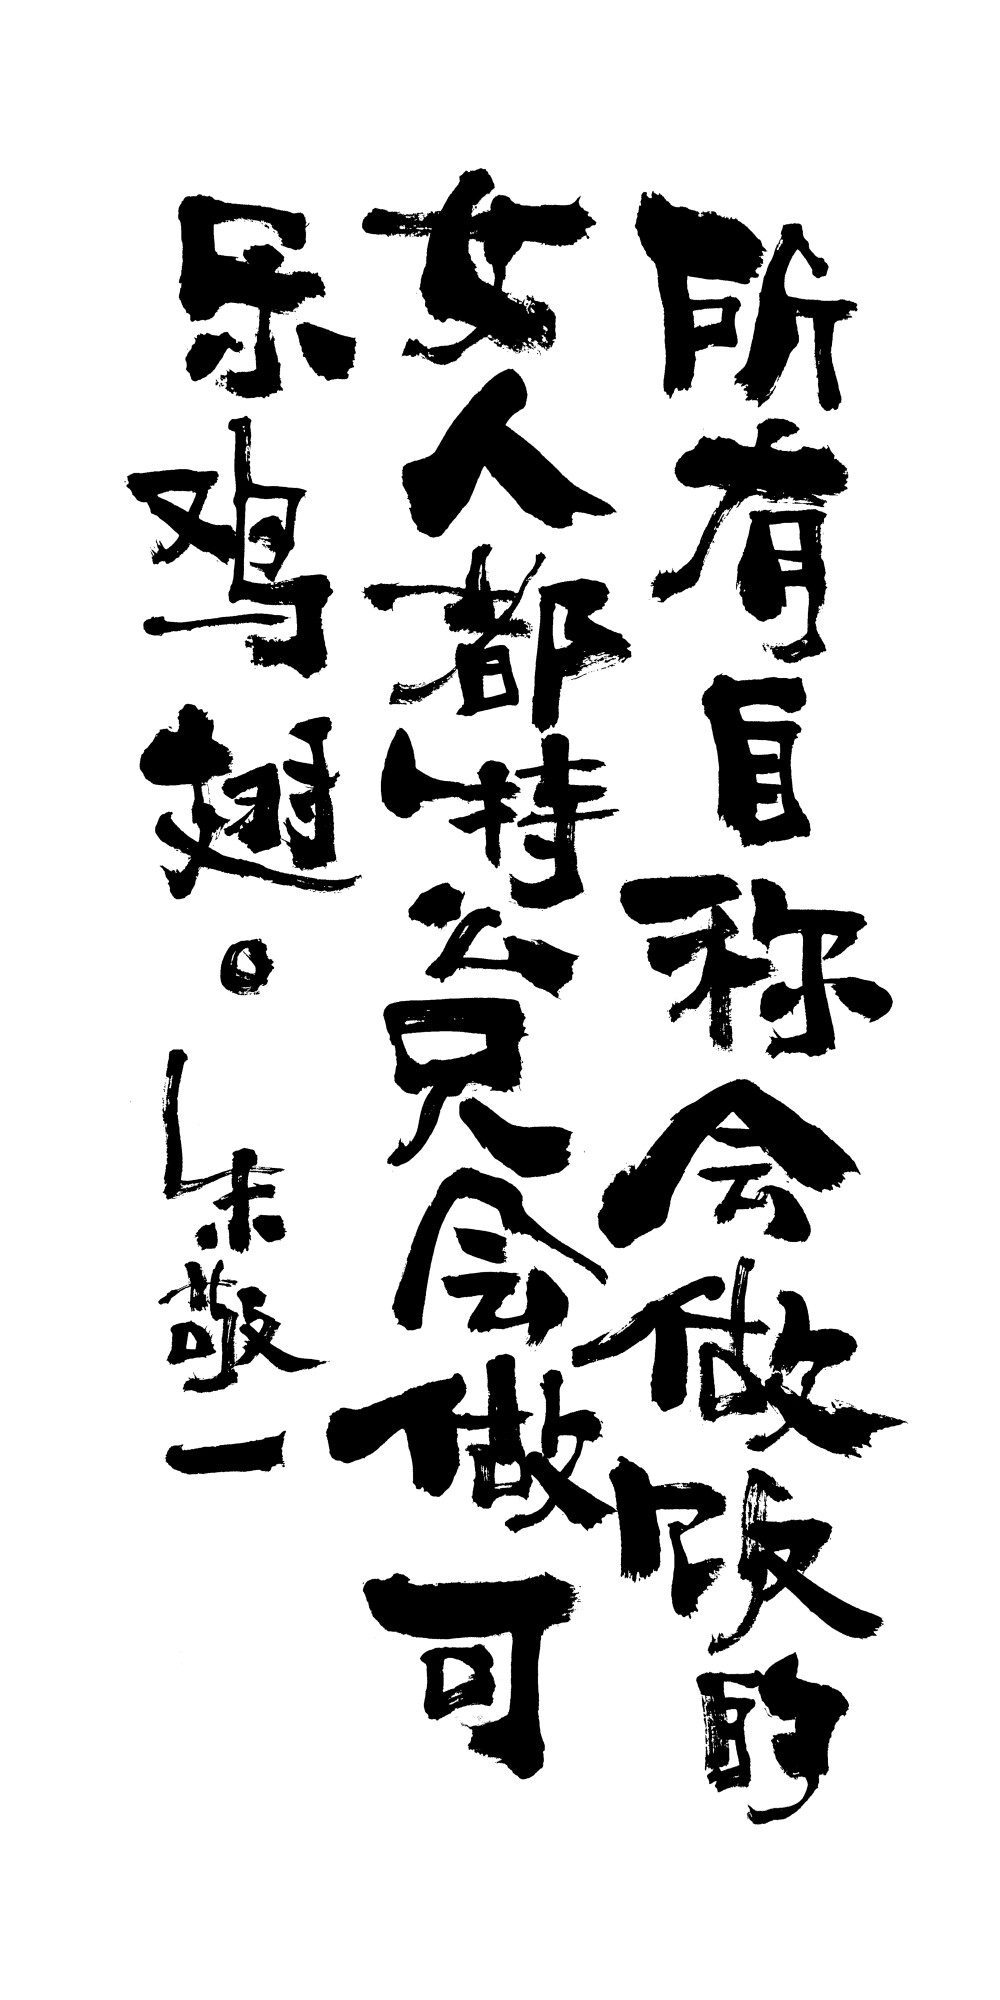 所有自称会做饭的
女人都特么只会做可
乐鸡翅。
朱敬一